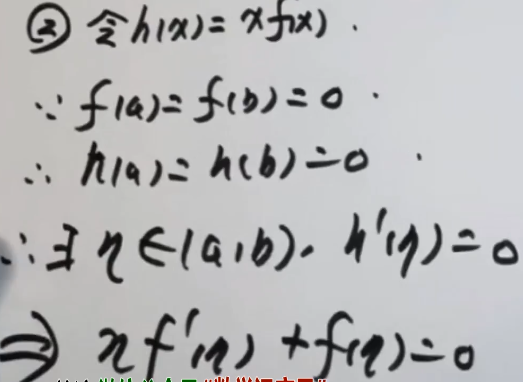 ② 令h(x)=xf(x).
∵ f(a)=f(b)=0.
∴ h(a)=h(b)=0.
∴∃η∈(a,b). h'(η)=0
⇒ ηf'(η)+f(η)=0